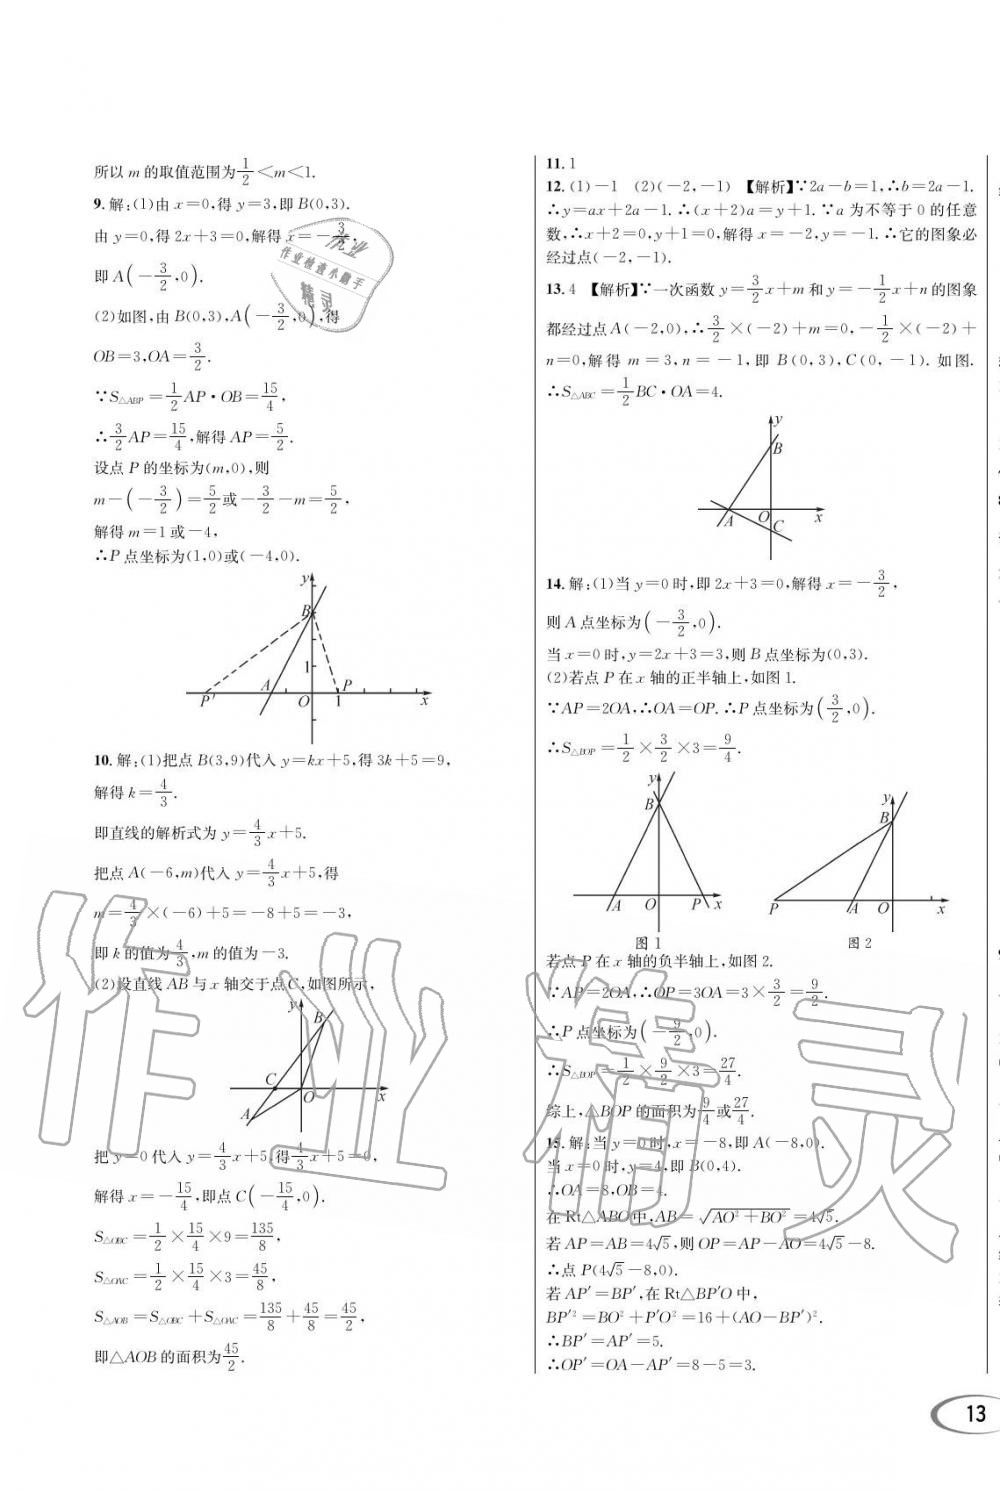 所以 m 的取值范围为 1/2＜m＜1.
9. 解:(1)由 x=0,得 y=3,即 B(0,3).
由 y=0,得 2x+3=0,解得 x=-3/2.
即 A(-3/2,0).
(2)如图,由 B(0,3),A(-3/2,0),得
OB=3,OA=3/2.
∵S△ABP=1/2 AP·OB=15/4,
∴3/2 AP=15/4,解得 AP=5/2.
设点 P 的坐标为(m,0),则
m-(-3/2)=5/2 或 -3/2-m=5/2,
解得 m=1 或 -4,
∴P 点坐标为(1,0)或(-4,0).
y
B
1
P′ A O 1 P x
10. 解:(1)把点 B(3,9)代入 y=kx+5,得 3k+5=9,
解得 k=4/3.
即直线的解析式为 y=4/3 x+5.
把点 A(-6,m)代入 y=4/3 x+5,得
m=4/3×(-6)+5=-8+5=-3,
即 k 的值为 4/3,m 的值为 -3.
(2)设直线 AB 与 x 轴交于点 C,如图所示,
y
B
C O x
A
把 y=0 代入 y=4/3 x+5,得 4/3 x+5=0,
解得 x=-15/4,即点 C(-15/4,0).
S△OBC=1/2×15/4×9=135/8,
S△OAC=1/2×15/4×3=45/8,
S△AOB=S△OBC+S△OAC=135/8+45/8=45/2,
即△AOB 的面积为 45/2.
11. 1
12. (1)-1 (2)(-2,-1) 【解析】∵2a-b=1,∴b=2a-1.
∴y=ax+2a-1.∴(x+2)a=y+1.∵a 为不等于 0 的任意
数,∴x+2=0,y+1=0,解得 x=-2,y=-1.∴它的图象必
经过点(-2,-1).
13. 4 【解析】∵一次函数 y=3/2 x+m 和 y=-1/2 x+n 的图象
都经过点 A(-2,0),∴3/2×(-2)+m=0,-1/2×(-2)+
n=0,解得 m=3,n=-1,即 B(0,3),C(0,-1). 如图.
∴S△ABC=1/2 BC·OA=4.
y
B
A O C x
14. 解:(1)当 y=0 时,即 2x+3=0,解得 x=-3/2,
则 A 点坐标为(-3/2,0).
当 x=0 时,y=2x+3=3,则 B 点坐标为(0,3).
(2)若点 P 在 x 轴的正半轴上,如图 1.
∵AP=2OA,∴OA=OP.∴P 点坐标为(3/2,0).
∴S△BOP=1/2×3/2×3=9/4.
y
B
A O P x
图 1
y
B
P A O x
图 2
若点 P 在 x 轴的负半轴上,如图 2.
∵AP=2OA,∴OP=3OA=3×3/2=9/2.
∴P 点坐标为(-9/2,0).
∴S△BOP=1/2×9/2×3=27/4.
综上,△BOP 的面积为 9/4 或 27/4.
15. 解:当 y=0 时,x=-8,即 A(-8,0).
当 x=0 时,y=4,即 B(0,4).
∴OA=8,OB=4.
在 Rt△ABO 中,AB=√(AO²+BO²)=4√5.
若 AP=AB=4√5,则 OP=AP-AO=4√5-8.
∴点 P(4√5-8,0).
若 AP′=BP′,在 Rt△BP′O 中,
BP′²=BO²+P′O²=16+(AO-BP′)².
∴BP′=AP′=5.
∴OP′=OA-AP′=8-5=3.
13
作业
作业检查小助手
精灵
作业精灵